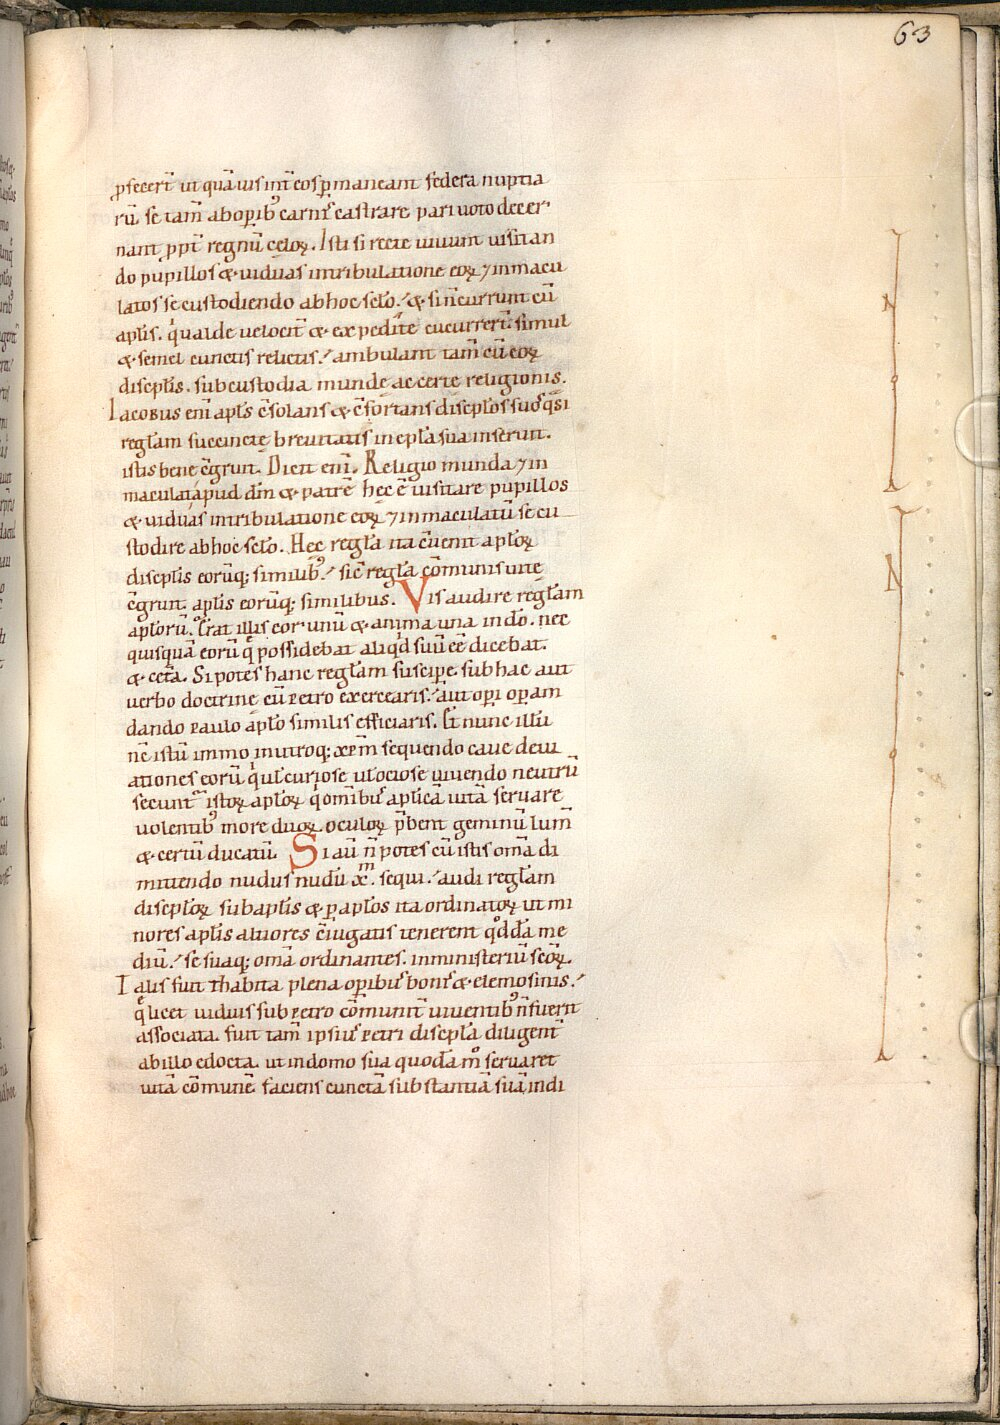 63
ꝓfecerт̄ ut quāuis int̄ eos ꝑmaneant federa nuptia
rū. se tam̄ ab oꝑib᷒ carnis castrare pari uoto decer
nant ꝓpt̄ regnū celoꝝ. Isti si recte uiuunt uisitan
do pupillos & uiduas in tribulatione eoꝝ ⁊ inmacu
latos se custodiendo ab hoc sc̄lo. & si n̄ currunt cū
apl̄is. qui ualde velocit̄ & expedite cucurrert̄ simul
& semel cunctis relictis. ambulant tam̄ cū eoꝝ
discipl̄is. sub custodia munde ac certe religionis.
Iacobus eni apl̄s c̄solans & c̄fortans discipl̄os suos q̄si
regl̄am succincte breuitatis in epl̄a sua inseruit.
istis bene c̄gruit. Dicit eni. Religio munda ⁊ in
maculata apud dm̄ & patrē hec ē uisitare pupillos
& uiduas in tribulatione eoꝝ ⁊ inmaculatū se cu
stodire ab hoc sc̄lo. Hec regl̄a ita c̄uenit apl̄oꝝ
discipl̄is eorūq; similib᷒. sic̄ regl̄a cōmunis uite
c̄gruit apl̄is eorūq; similibus. Vis audire regl̄am
apl̄orū. Erat illis cor unū & anima una in dō. nec
quisquā eorū q̄ possidebat aliqd̄ suū ēē dicebat.
& cet̄a. Si potes hanc regl̄am suscipe. sub hac aut
uerbo doctrine cū petro exercearis. aut oꝑi oꝑam
dando paulo apl̄o similis efficiaris. Et nunc illū
nc̄ istū immo in utroq; xp̄m sequendo caue deui
ationes eorū qui ul̄ curiose ul̄ ociose uiuendo neutrū
secunt̄ istoꝝ apl̄oꝝ qui omib᷒ apl̄icā uitā seruare
uolentib᷒ more duoꝝ oculoꝝ p̄bent geminū lum̄
& certū ducatū. Si aū n̄ potes cū istis om̄a di
mittendo nudus nudū xp̄m sequi. audi regl̄am
discipl̄oꝝ sub apl̄is & ꝑ apl̄os ita ordinatoꝝ ut mi
nores apl̄is altiores c̄iugatis tenerent qd̄dā me
diū. se suaq; om̄a ordinantes in ministeriū sc̄oꝝ.
Talis fuit thabita plena oꝑibus bonis & elemosinis.
q̄ licet uiduis sub petro cōmunit̄ uiuentib᷒ n̄ fuerit
associata. fuit tam̄ ipsius petri discipl̄a diligent̄
ab illo edocta. ut in domo sua quodā m̊ seruaret
uitā cōmunē. faciens cunctā substantiā suā indi
N
N